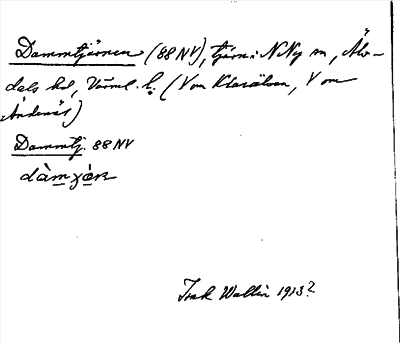 Dammtjärnen (88 NV), tjärn i N Ny sn, Älv-
dals hd, Värml. l. (V om Klarälven, V om
Ändenäs)
Dammtj. 88 NV
dàmʒàɳ
Isak Wallin 1913?